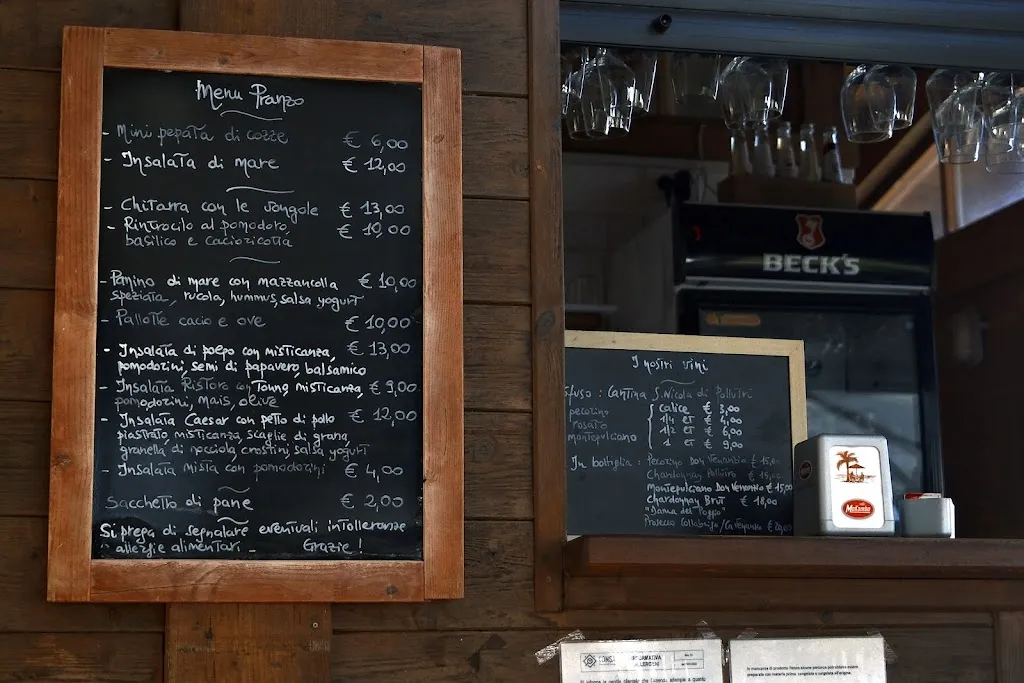 Menu Pranzo
- Mini pepata di cozze € 6,00
- Insalata di mare € 12,00
- Chitarra con le vongole € 13,00
- Rintrocilo al pomodoro, € 10,00
basilico e cacioricotta
- Panino di mare con mazzancolla € 10,00
speziata, rucola, hummus, salsa yogurt
- Pallotte cacio e ove € 10,00
- Insalata di polpo con misticanza, € 13,00
pomodorini, semi di papavero, balsamico
- Insalata Ristoro con Tonno, misticanza, € 9,00
pomodorini, mais, olive
- Insalata Caesar con petto di pollo € 12,00
piastrato, misticanza, scaglie di grana,
granella di nocciola, crostini, salsa yogurt
- Insalata mista con pomodorini € 4,00
Sacchetto di pane € 2,00
Si prega di segnalare eventuali intolleranze
allergie alimentari - Grazie!
BECK'S
I nostri vini
sfuso: Cantina S. Nicola di Pollutri
pecorino calice € 3,00
rosato 1/4 lt € 4,00
montepulciano 1/2 lt € 6,00
1 lt € 9,00
In bottiglia: Pecorino Don Venanzio € 15,00
Chardonnay Pollutro € 15,00
Montepulciano Don Venanzio € 15,00
Chardonnay Brut € 18,00
"Dama del Poggio"
Prosecco
INFORMATIVA
ALLERGENI